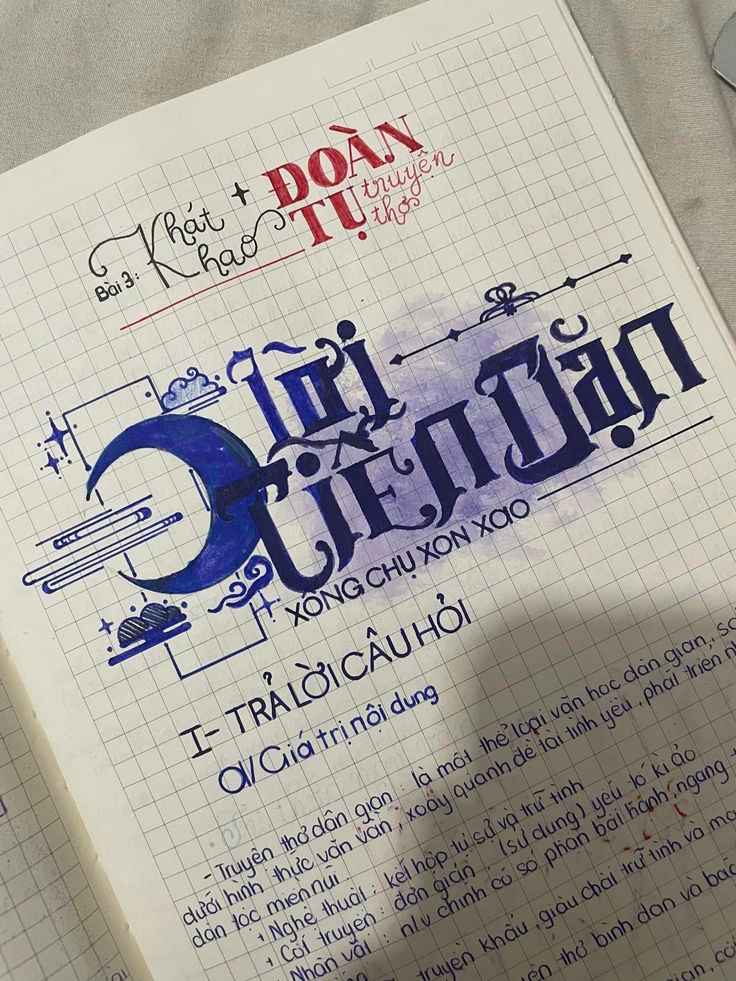 Bài 3: Khát khao + ĐOÀN TỤ truyện thơ
lời
TIỄN DẶN
XỐNG CHỤ XON XAO
I- TRẢ LỜI CÂU HỎI
a/ Giá trị nội dung
- Truyện thơ dân gian : là một thể loại văn học dân gian, sá
dưới hình thức văn vần, xoay quanh đề tài tình yêu, phát triển
dân tộc miền núi
+ Nghệ thuật : kết hợp tự sự và trữ tình
+ Cốt truyện : đơn giản (sử dụng) yếu tố kì ảo
Nhân vật : nlv chính có số phận bất hạnh, ngang
truyện khẩu, giàu chất trữ tình và
thơ bình dân và bác
gian, có